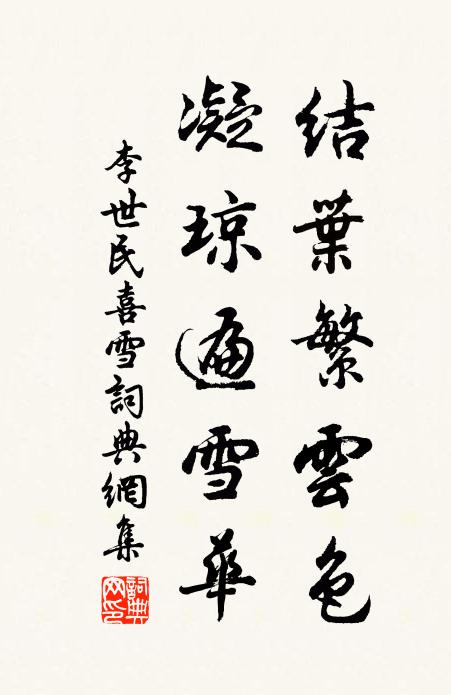 結葉繁雲色
凝琼遍雪華
李世民喜雪詞典網集
詞典網印